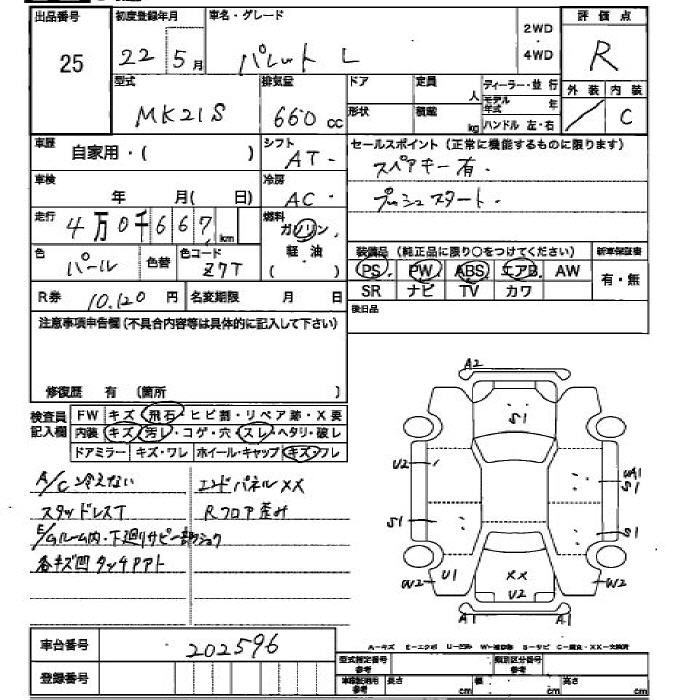 出品番号 初度登録年月 車名・グレード 2WD 評価点
25 22 5月 パレット L ・ R
4WD
型式 排気量 ドア 定員 ディーラー・並行 外装 内装
MK21S 660 cc 人 モデル年式 年 / C
形状 積載 kg ハンドル 左・右
車歴 自家用・( ) シフト AT- セールスポイント (正常に機能するものに限ります)
スペアキー有・
車検 年 月( 日) 冷房 AC- プッシュスタート・
走行 4万0千667 km 燃料 ガソリン・ 装備品 (純正品に限り○をつけてください) 新車保証書
軽・油
色 パール 色替 色コード Z7T ( ) PS PW ABS エアB AW 有・無
R券 10,120 円 名変期限 月 日 SR ナビ TV カワ
注意事項申告欄(不具合内容等は具体的に記入して下さい) 後日品
修復歴 有 (箇所 )
検査員記入欄 FW キズ・飛石・ヒビ割・リペア跡・X要
内装 キズ・汚レ・コゲ・穴・スレ・ヘタリ・破レ
ドアミラー キズ・ワレ ホイール・キャップ キズ・ワレ
A/C冷えない エンドパネルXX
スタッドレスT Rフロア歪み
E/Gルーム内・下廻りサビ一部
各キズ凹タッチアト
A2
S1
U2 UA1
S1
S1 S1
W2 U1 XX W2
U2
A1 A1
車台番号 202596
登録番号
A-キズ E-エクボ
型式指定番号 参考 類別区分番号 参考
参考 長さ cm 幅 cm 高さ cm